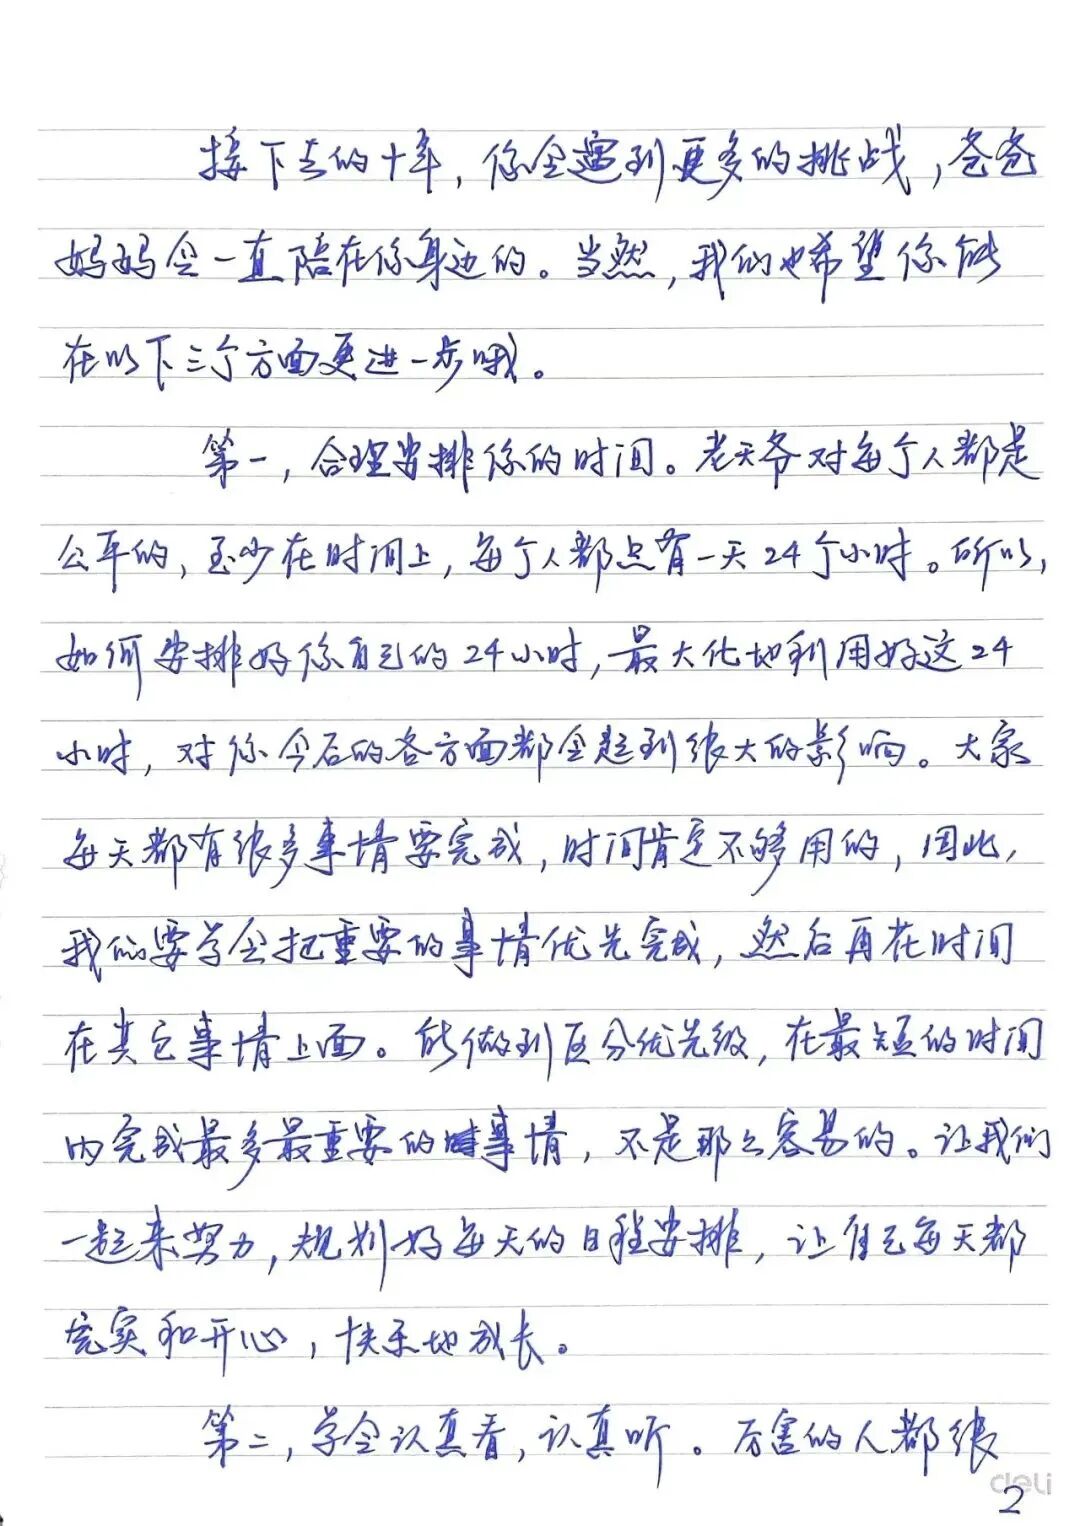 接下去的十年，你会遇到更多的挑战，爸爸
妈妈会一直陪在你身边的。当然，我们也希望你能
在以下三个方面更进一步哦。
第一，合理安排你的时间。老天爷对每个人都是
公平的，至少在时间上，每个人都占有一天24个小时。所以，
如何安排好你自己的24小时，最大化地利用好这24
小时，对你今后的各方面都会起到很大的影响。大家
每天都有很多事情要完成，时间肯定不够用的，因此，
我们要学会把重要的事情优先完成，然后再花时间
在其它事情上面。能做到区分优先级，在最短的时间
内完成最多最重要的事情，不是那么容易的。让我们
一起来努力，规划好每天的日程安排，让自己每天都
充实和开心，快乐地成长。
第二，学会认真看，认真听。厉害的人都很
deli
2